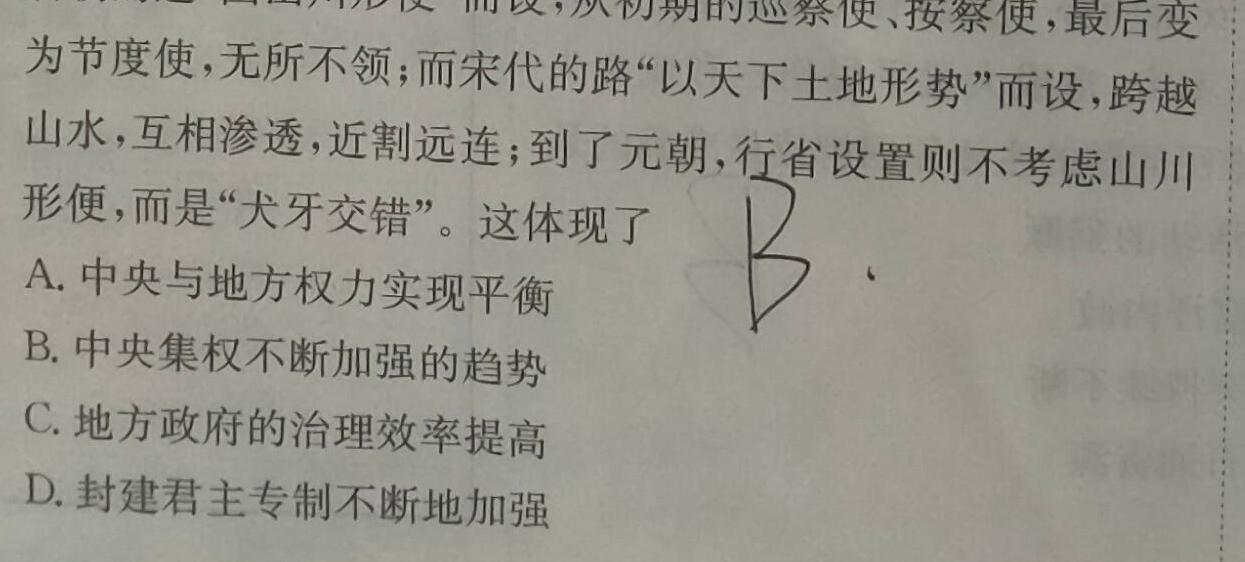 而设,从初期的巡察使、按察使,最后变
为节度使,无所不领;而宋代的路“以天下土地形势”而设,跨越
山水,互相渗透,近割远连;到了元朝,行省设置则不考虑山川
形便,而是“犬牙交错”。这体现了
B
A. 中央与地方权力实现平衡
B. 中央集权不断加强的趋势
C. 地方政府的治理效率提高
D. 封建君主专制不断地加强